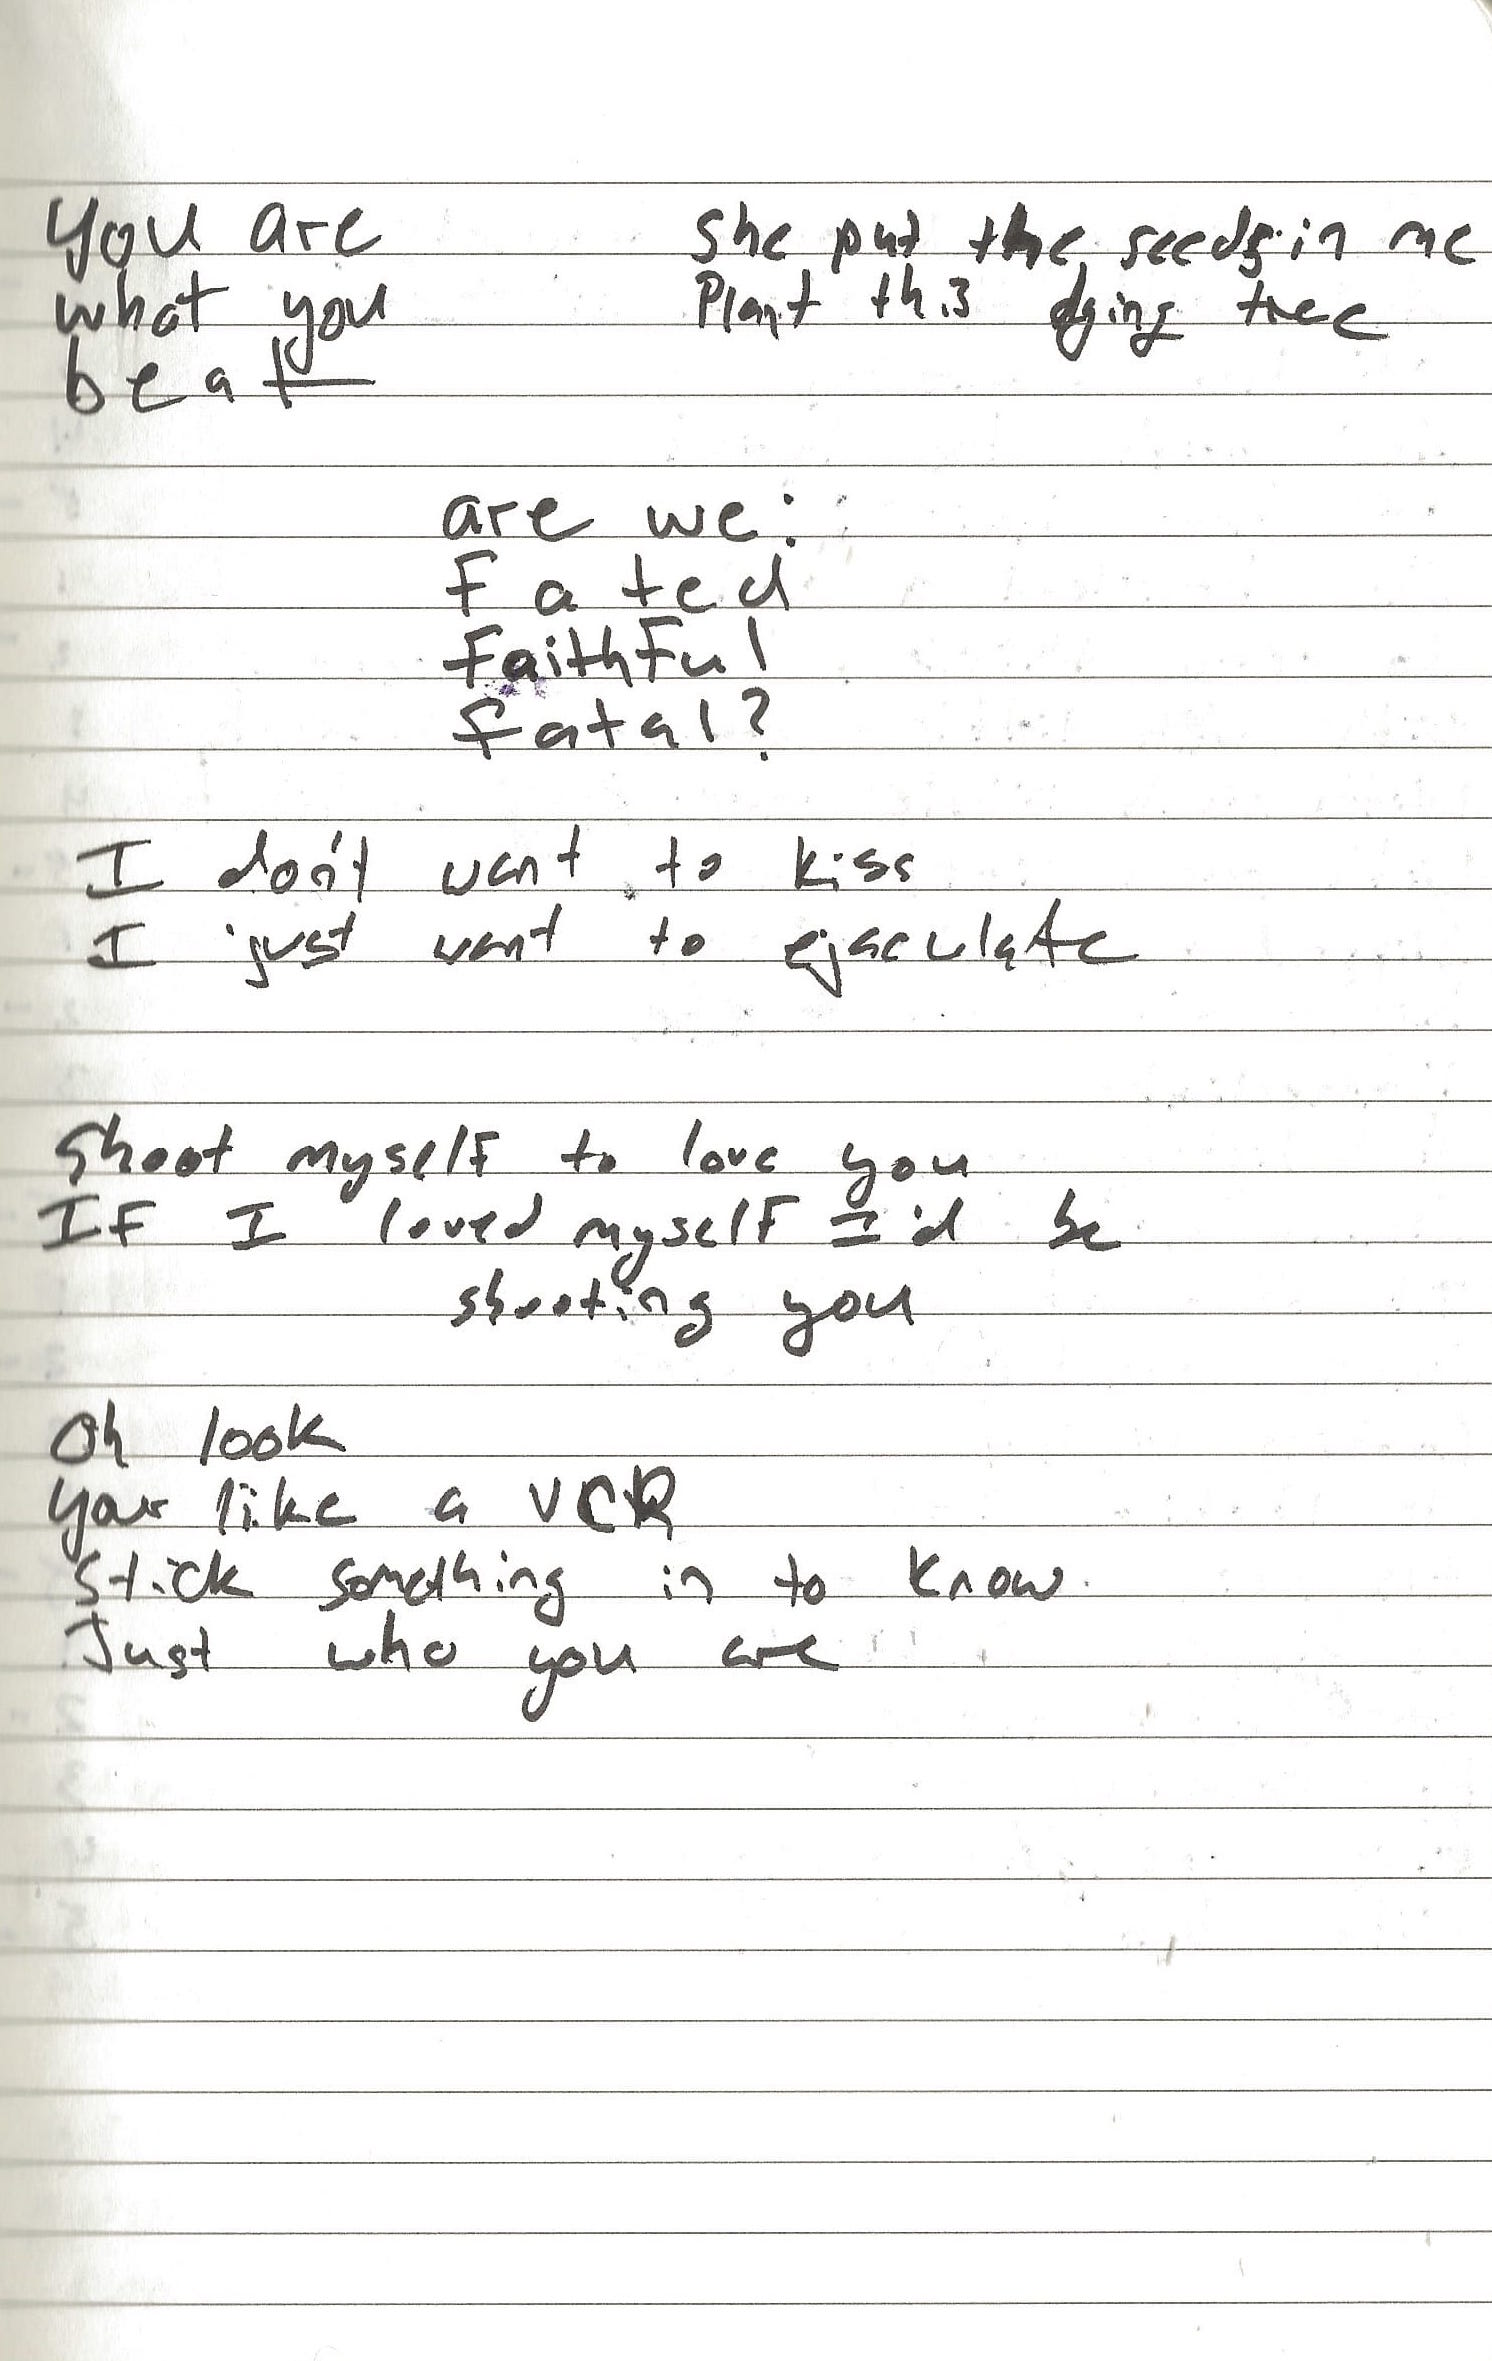 you are
what you
beat
she put the seeds in me
Plant this dying tree
are we:
fated
faithful
fatal?
I don't want to kiss
I just want to ejaculate
Shoot myself to love you
If I loved myself I'd be
shooting you
Oh look
your like a VCR
Stick something in to know
Just who you are